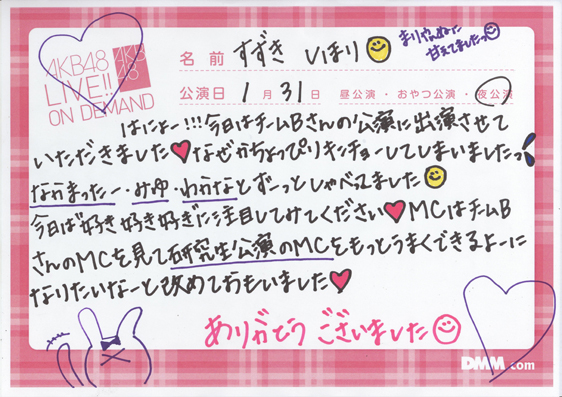 AKB48
LIVE!!
ON DEMAND
AKB
48
名前 すずき しほり
まりやんぬに
甘えてましたっ
公演日 1月31日 昼公演・おやつ公演・夜公演
はにょー!!!今日はチームBさんの公演に出演させて
いただきました♥なぜかちょっぴりキンチョーしてしまいましたっ
なかまったー・みゆ・わかなとずーっとしゃべってました
今日は"好き好き好き"に注目してみてください♥MCはチームB
さんのMCを見て研究生公演のMCをもっとうまくできるよーに
なりたいなーと改めておもいました♥
ありがとうございました
DMM.com